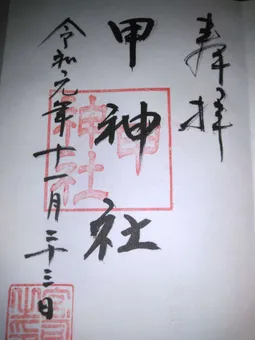 奉拝
甲神社
令和元年十一月二十三日
甲
神社
宮司
之印